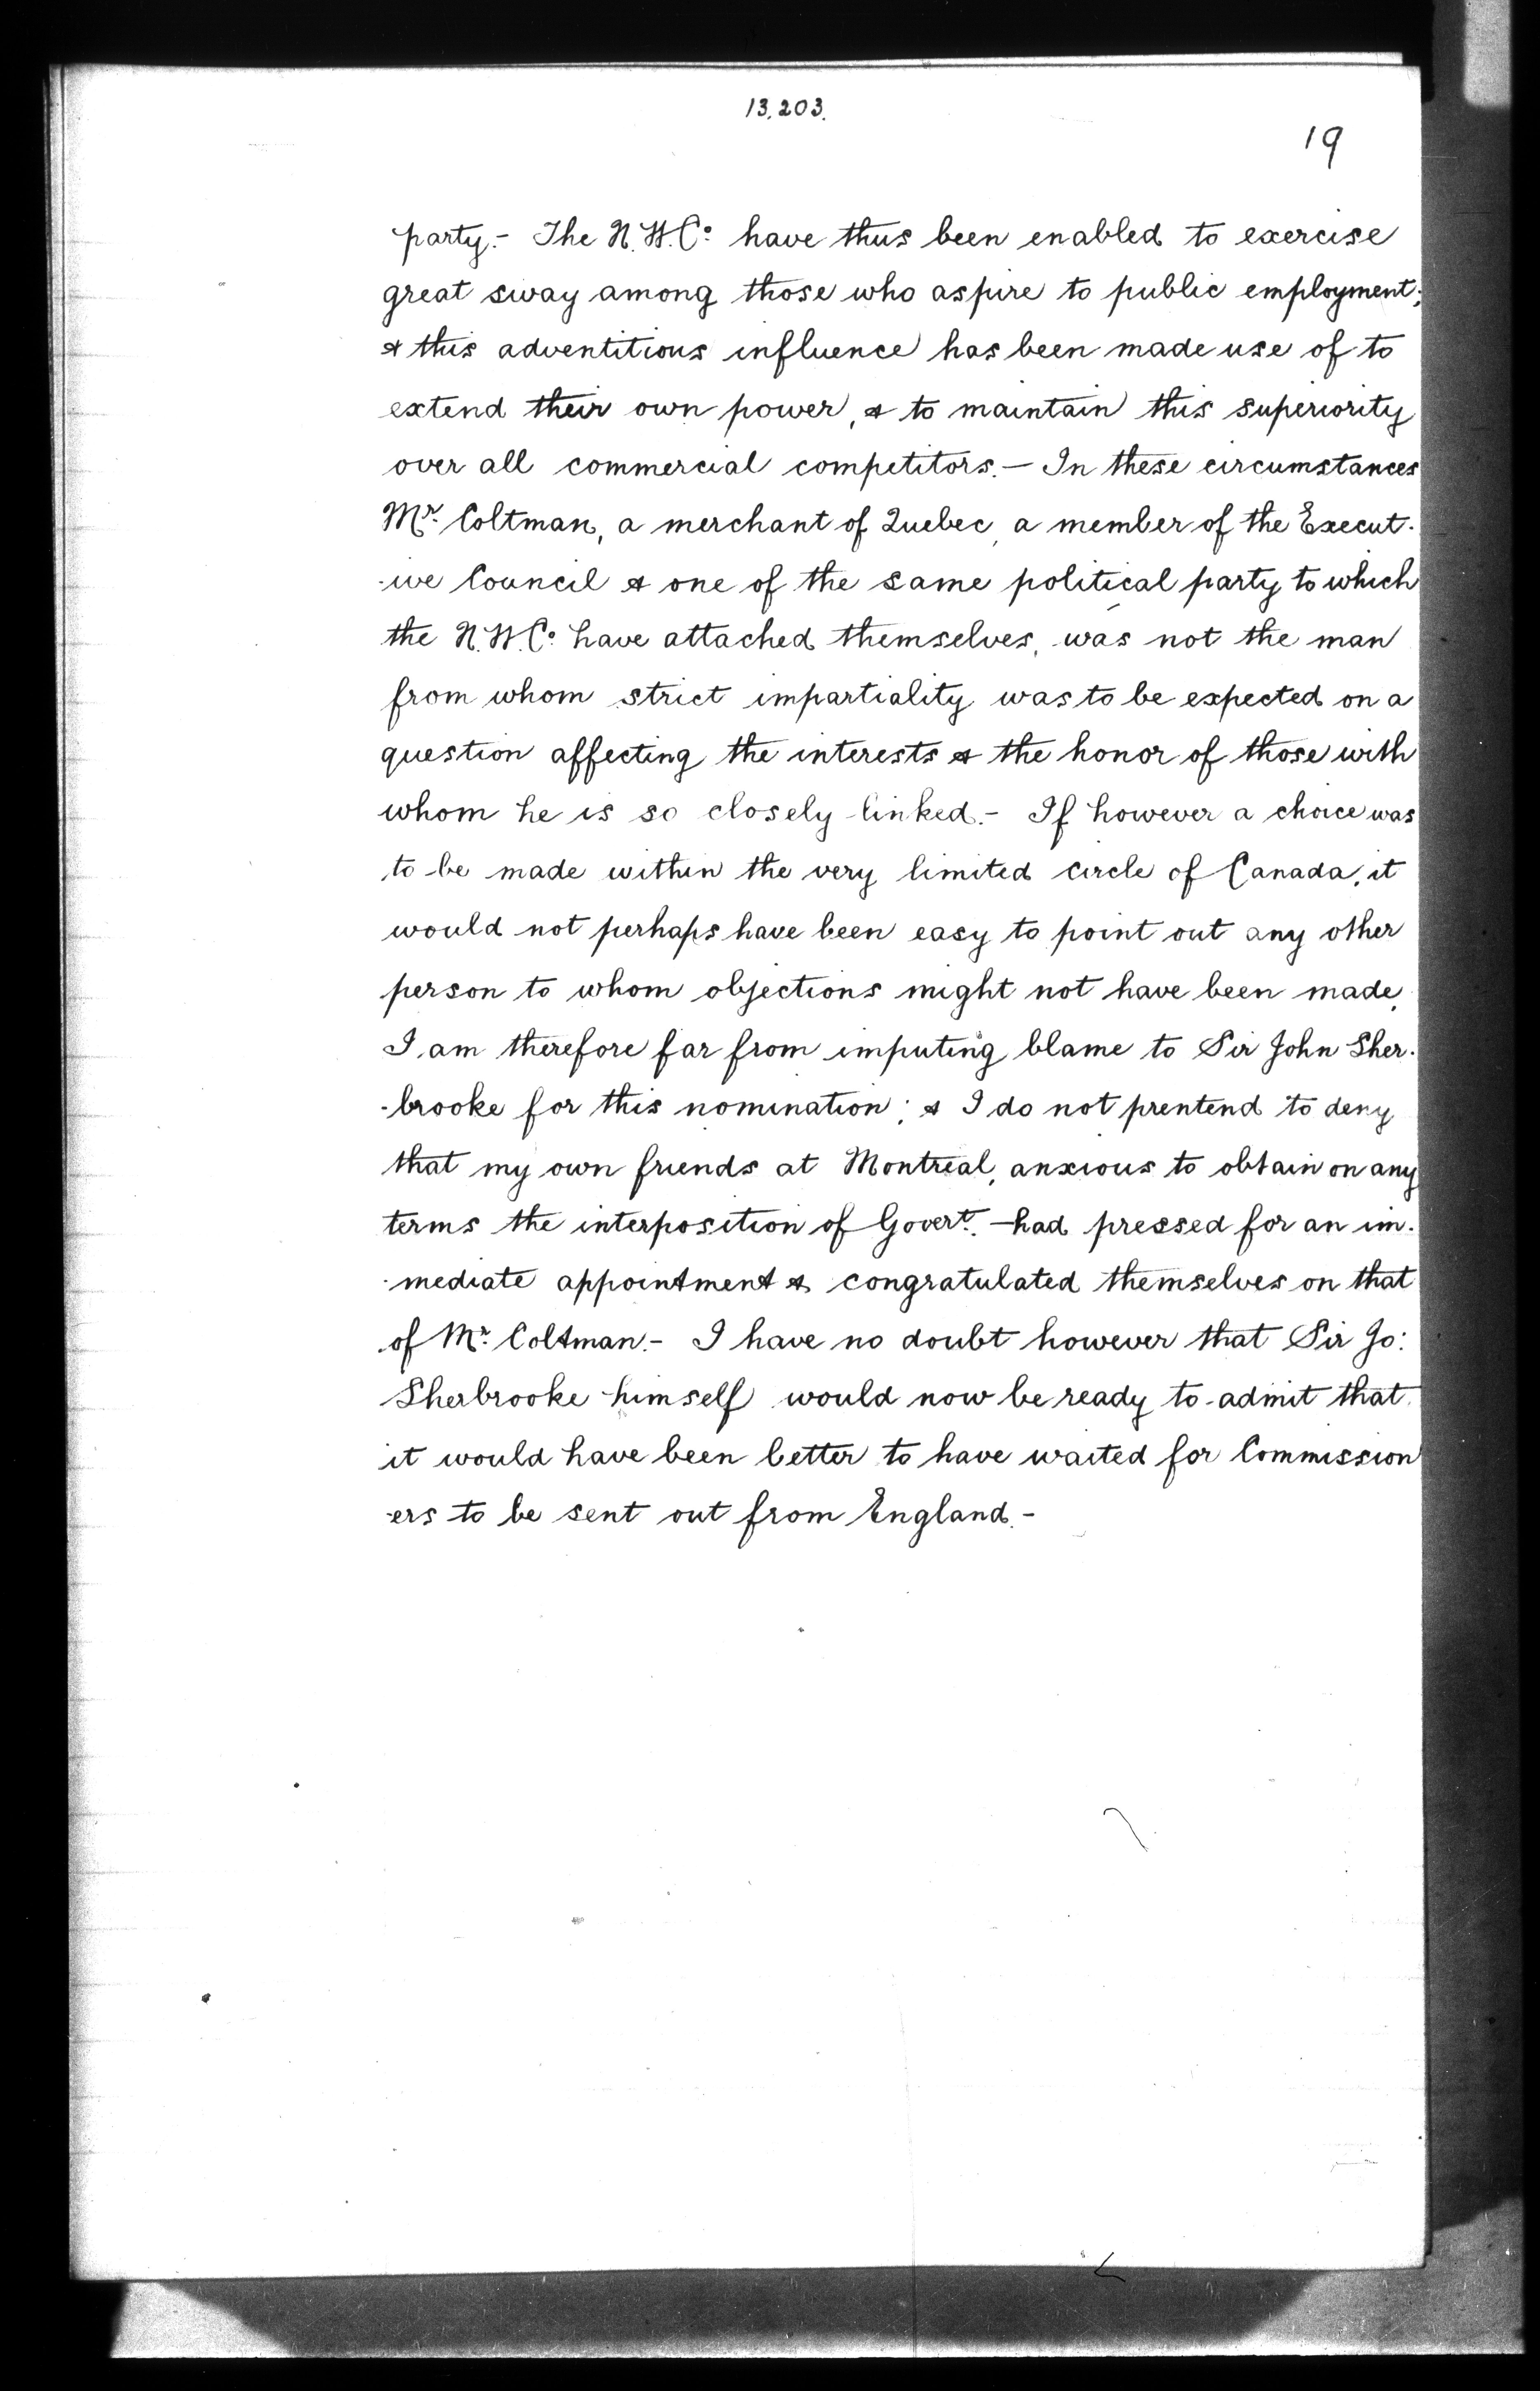 13,203.
19
party.- The N.W.Co have thus been enabled to exercise
great sway among those who aspire to public employment;
& this adventitious influence has been made use of to
extend their own power, & to maintain this superiority
over all commercial competitors.- In these circumstances
Mr. Coltman, a merchant of Quebec, a member of the Execut-
-ive Council & one of the same political party to which
the N.W.Co have attached themselves, was not the man
from whom strict impartiality was to be expected on a
question affecting the interests & the honor of those with
whom he is so closely linked.- If however a choice was
to be made within the very limited circle of Canada, it
would not perhaps have been easy to point out any other
person to whom objections might not have been made.
I am therefore far from imputing blame to Sir John Sher-
-brooke for this nomination; & I do not prentend to deny
that my own friends at Montreal, anxious to obtain on any
terms the interposition of Govert. -had pressed for an im-
-mediate appointment & congratulated themselves on that
of Mr. Coltman.- I have no doubt however that Sir Jo:
Sherbrooke himself would now be ready to admit that
it would have been better to have waited for Commission
-ers to be sent out from England.-